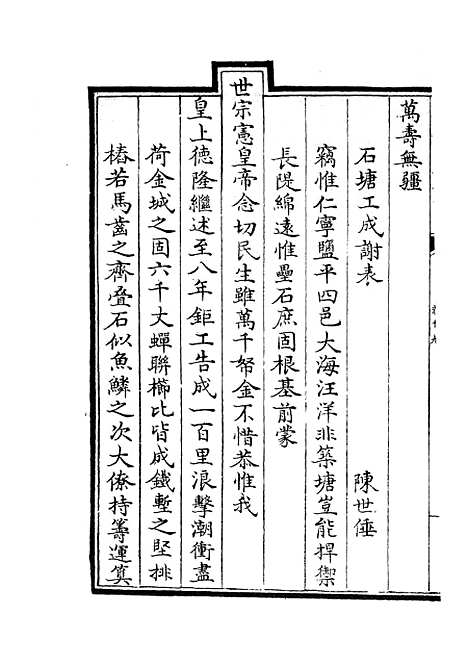 萬壽無疆
石塘工成謝表 陳世倕
竊惟仁寧鹽平四邑大海汪洋非築塘豈能捍禦
長隄綿遠惟壘石庶固根基前蒙
世宗憲皇帝念切民生雖萬千帑金不惜恭惟我
皇上德隆繼述至八年鉅工告成一百里浪擊潮衝盡
荷金城之固六千丈蟬聯櫛比皆成鐵塹之堅排
樁若馬齒之齊疊石似魚鱗之次大僚持籌運箕